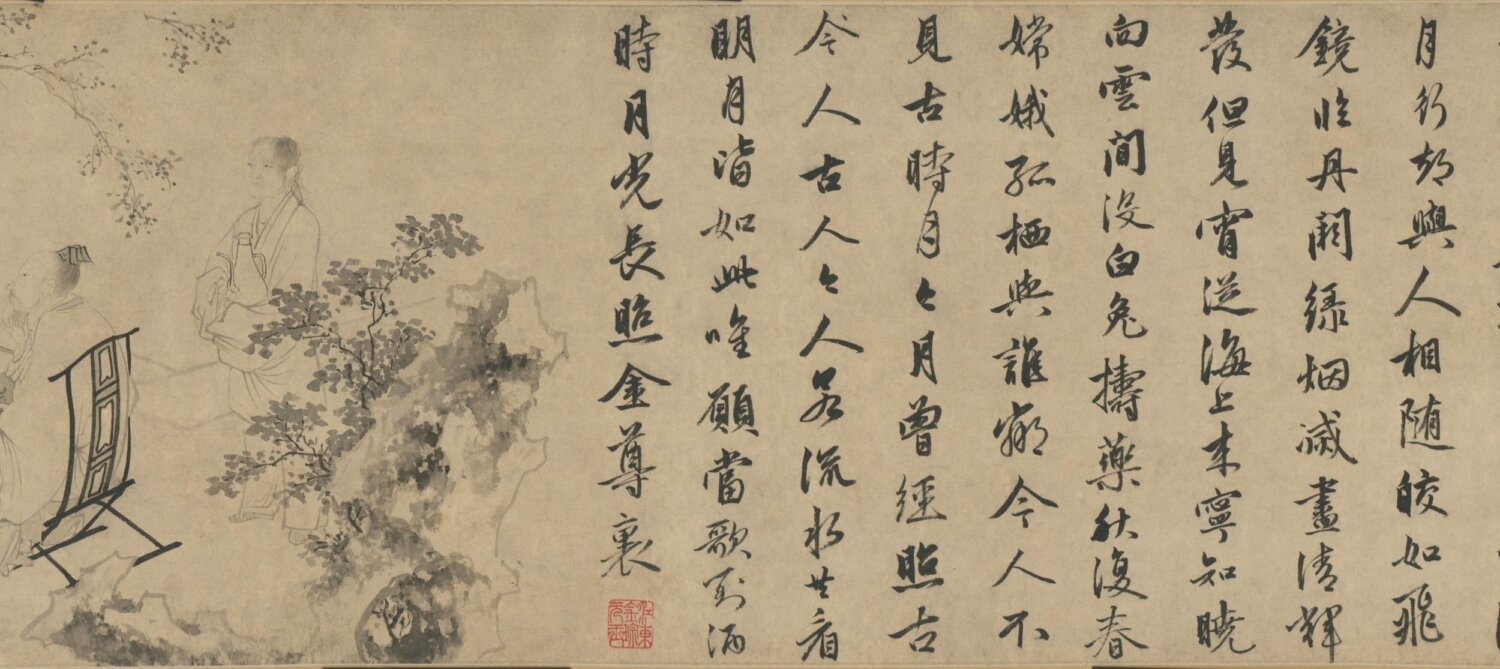 月行却與人相随皎如飛
鏡臨丹闕緑烟滅盡清輝
發但見宵從海上来寧知曉
向雲間沒白兔擣藥秋復春
嫦娥孤栖與誰鄰今人不
見古時月々月曾經照古
今人古人々人若流水共看
明月皆如此唯願當歌對酒
時月光長照金尊裏
江東金琮元玉